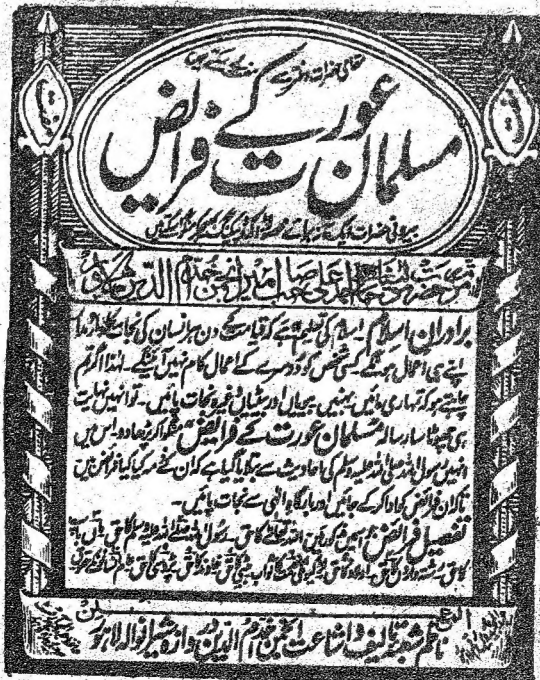 مقامی حضرات دفتر سے مفت لے سکتے ہیں
مفت
مفت
مسلمان عورت کے فرائض
بیرونی حضرات ایک آنہ برائے محصولڈاک و پیکنگ بھیج کر منگوا سکتے ہیں
حضرت مولانا احمد علی صاحب امیر انجمن خدام الدین
برادران اسلام۔ اسلام کی تعلیم یہ ہے کہ قیامت کے دن ہر انسان کی نجات کا دارومدار
اپنے ہی اعمال ہونگے کسی شخص کو دوسرے کے اعمال کام نہیں آئینگے۔ لہٰذا اگر تم
چاہتے ہو کہ تمہاری مائیں بہنیں بیویاں اور بیٹیاں وغیرہ نجات پائیں۔ تو انہیں نہایت
ہی چھوٹا سا رسالہ مسلمان عورت کے فرائض منگوا کر پڑھا دو۔ اس میں
انہیں رسول اللہ صلی اللہ علیہ وسلم کی احادیث سے بتلایا گیا ہے کہ ان کے ذمہ کیا کیا فرائض ہیں
تاکہ ان فرائض کو ادا کر کے جائیں اور بارگاہ الٰہی سے نجات پائیں۔
تفصیل فرائض جو اسمیں مذکور ہیں۔ اللہ تعالےٰ کا حق۔ رسول اللہ صلے اللہ علیہ وسلم کا حق۔ ماں باپ
کا حق۔ رشتہ داروں کا حق۔ اولاد کا حق۔ خاوند کا حق۔ پڑوسی کا حق
ناظم شعبہ تالیف و اشاعت انجمن خدام الدین دروازہ شیرانوالہ لاہور